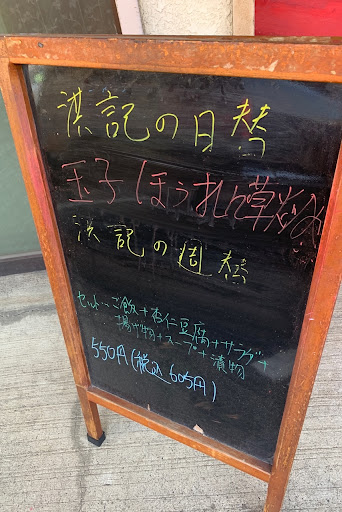 洪記の日替
玉子ほうれん草炒め
洪記の週替
セット…ご飯+杏仁豆腐+サラダ+
揚げ物+スープ+漬物
550円(税込605円)